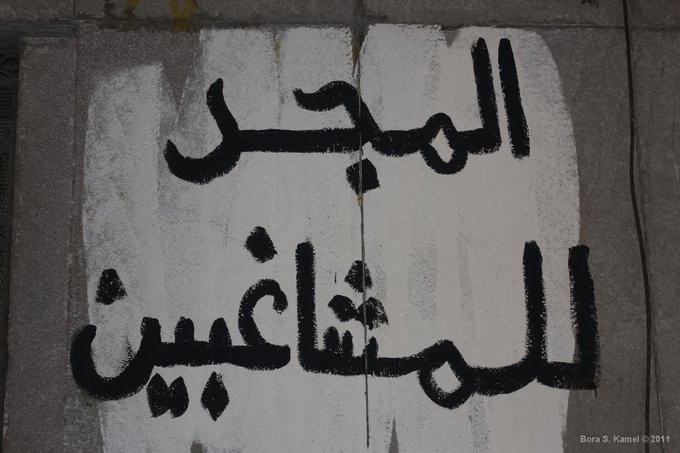 المجد
للمشاغبين
Bora S. Kamel © 2011